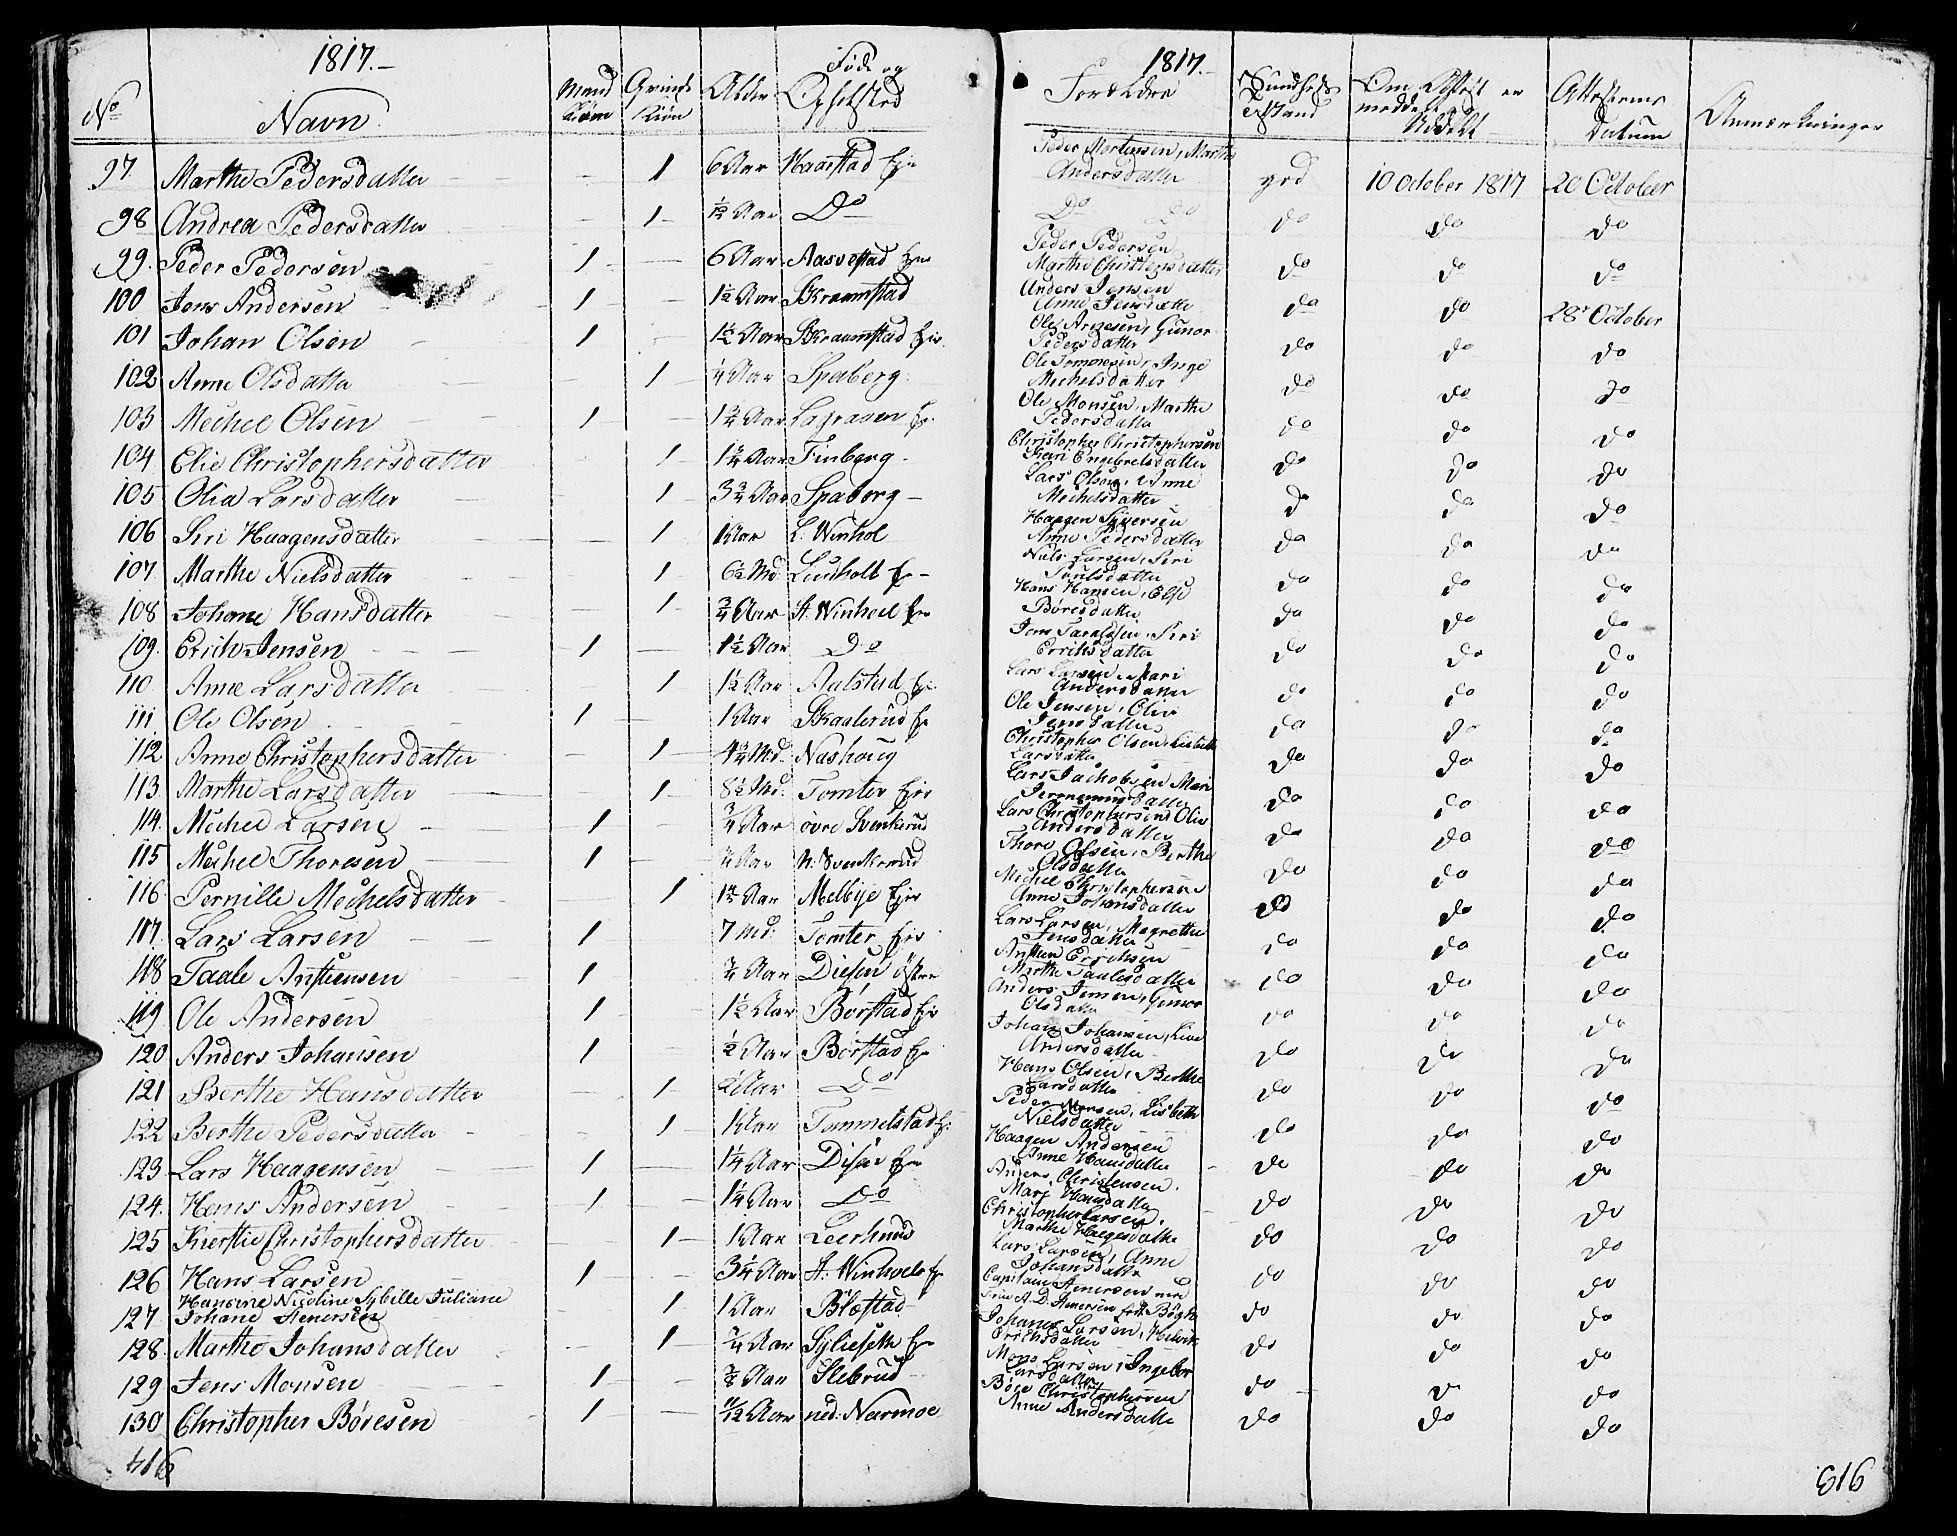 1817.-
No Navn Mand Kiøn Qvinde Kiøn Alder Føde og Opholsted
97 Marthe Pedersdatter - 1 6 Aar Haarstad Eje
98 Andrea Pedersdatter - 1 1/12 Aar Do
99. Peder Pedersen 1 - 6 Aar Aasvestad Eje
100 Jens Andersen 1 - 1 1/2 Aar Skraamstad
101 Johan Olsen 1 - 1 1/2 Aar Skraamstad Eie
102 Anne Olsdatter - 1 1/4 Aar Spaberg
103 Mechel Olsen 1 - 1 3/4 Aar
104 Elie Christophersdatter - 1 1 3/4 Aar Finberg
105 Olia Larsdatter - 1 3 3/4 Aar Spaberg
106 Siri Haagensdatter - 1 1 Aar L. Winhol
107 Marthe Nielsdatter - 1 6 1/2 Md. Lundholt E
108 Johane Hansdatter - 1 3/4 Aar St. Winhoel Eie
109. Erich Jensen 1 - 1 1/2 Aar Do
110 Anne Larsdatter - 1 1 1/2 Aar Aalstad Eie
111 Ole Olsen 1 - 1 Aar Skaalerud E
112 Anne Christophersdatter - 1 4 3/4 Md. Nashoug
113 Marthe Larsdatter - 1 8 1/2 Md. Tomter Eie
114. Mechel Larsen 1 3/4 Aar øvre Svenkerud
115 Mechel Thoresen 1 - 3/4 Aar N: Svenkerud
116 Pernille Mechelsdatter - 1 Aar Melbye Eie
117. Lars Larsen 1 7 Md. Tomter Eie
118 Taale Anstensen 1 3/4 Aar Diesen Østre
119 Ole Andersen 1 1 1/2 Aar Børstad Eie
120 Anders Johansen 1 1/2 Aar Børstad E
121 Berthe Hansdatter - 1 1/2 Aar Do
122 Berthe Pedersdatter - 1 1 Aar Tommelstad E
123 Lars Haagensen 1 - 1 1/4 Aar Disen Eie
124. Hans Andersen 1 - 1 1/4 Aar Do
125 Kierstie Christophersdatter - 1 1 Aar Leerhuus
126 Hans Larsen 1 - 3 1/4 Aar St. Winhoels E
Hansine Nicoline Sybille Juliane
127 Johane Stenersen 1 1 Aar Blæstad
128. Marthe Johansdatter - 1 3/4 Aar Sylieseth E
129 Jens Monsen 1 - 3/4 Aar Slebrud
130 Christopher Børesen 1 - 11/12 Aar ned: Narmoe
416
1817.-
Forældre Sundheds Tilstand Om Attest er meddelt Attestens Datum Anmærkninger
Peder Mortensen, Marthe
Andersdatter god 10 October 1817 20 October
Do Do do do do
Peder Pedersen
Marthe Christensdatter do do do
Anders Jensen
Anne Jensdatter do do 28 October
Ole Arnesen, Gunor
Pedersdatter do do do
Ole, Inge
Mechelsdatter do do do
Ole Monsen, Marthe
Pedersdatter do do do
Christopher Christophersen
Kari Engebretsdatter do do do
Lars Olsen, Anne
Mechelsdatter do do do
Haagen Siversen
Anne Pedersdatter do do do
Niels Larsen, Siri
Poulsdatter do do do
Hans Hansen, Else
Børesdatter do do do
Jens Taraldsen, Siri
Erichsdatter do do do
Lars Larsen, Mari
Andersdatter do do do
Ole Jensen, Olia
Jensdatter do do do
Christopher Olsen, Lisbeth
Larsdatter do do do
Lars Jachobsen Mari
do do do
Lars Christophersen, Olia
Andersdatter do do do
Thore Olsen, Berthe
Olsdatter do do do
Michel Christophersen
Anne Johansdatter do do do
Lars Larsen, Magrethe
Jensdatter do do do
Ansten Erichsen
Marthe Taalesdatter do do do
Anders Jensen, Gunor
Olsdatter do do do
Johan Johansen, Live
Andersdatter do do do
Hans Olsen, Berthe
Larsdatter do do do
Peder Monsen, Lisbeth
Nielsdatter do do do
Haagen Andersen
Anne Hansdatter do do do
Anders Christensen.
Mari Hansdatter do do do
Christopher Larsen,
Marthe Haagensdatter do do do
Lars Larsen, Anne
Johansdatter do do do
Capitain Stenersen med
Frue A. D. Stenersen født Bøgh do do do
Johannes Larsen, Helvik
Erichsdatter do do do
Mons Larsen, Ingebor
Larsdatter do do do
Børe Christophersen
Anne Andersdatter do do do
616